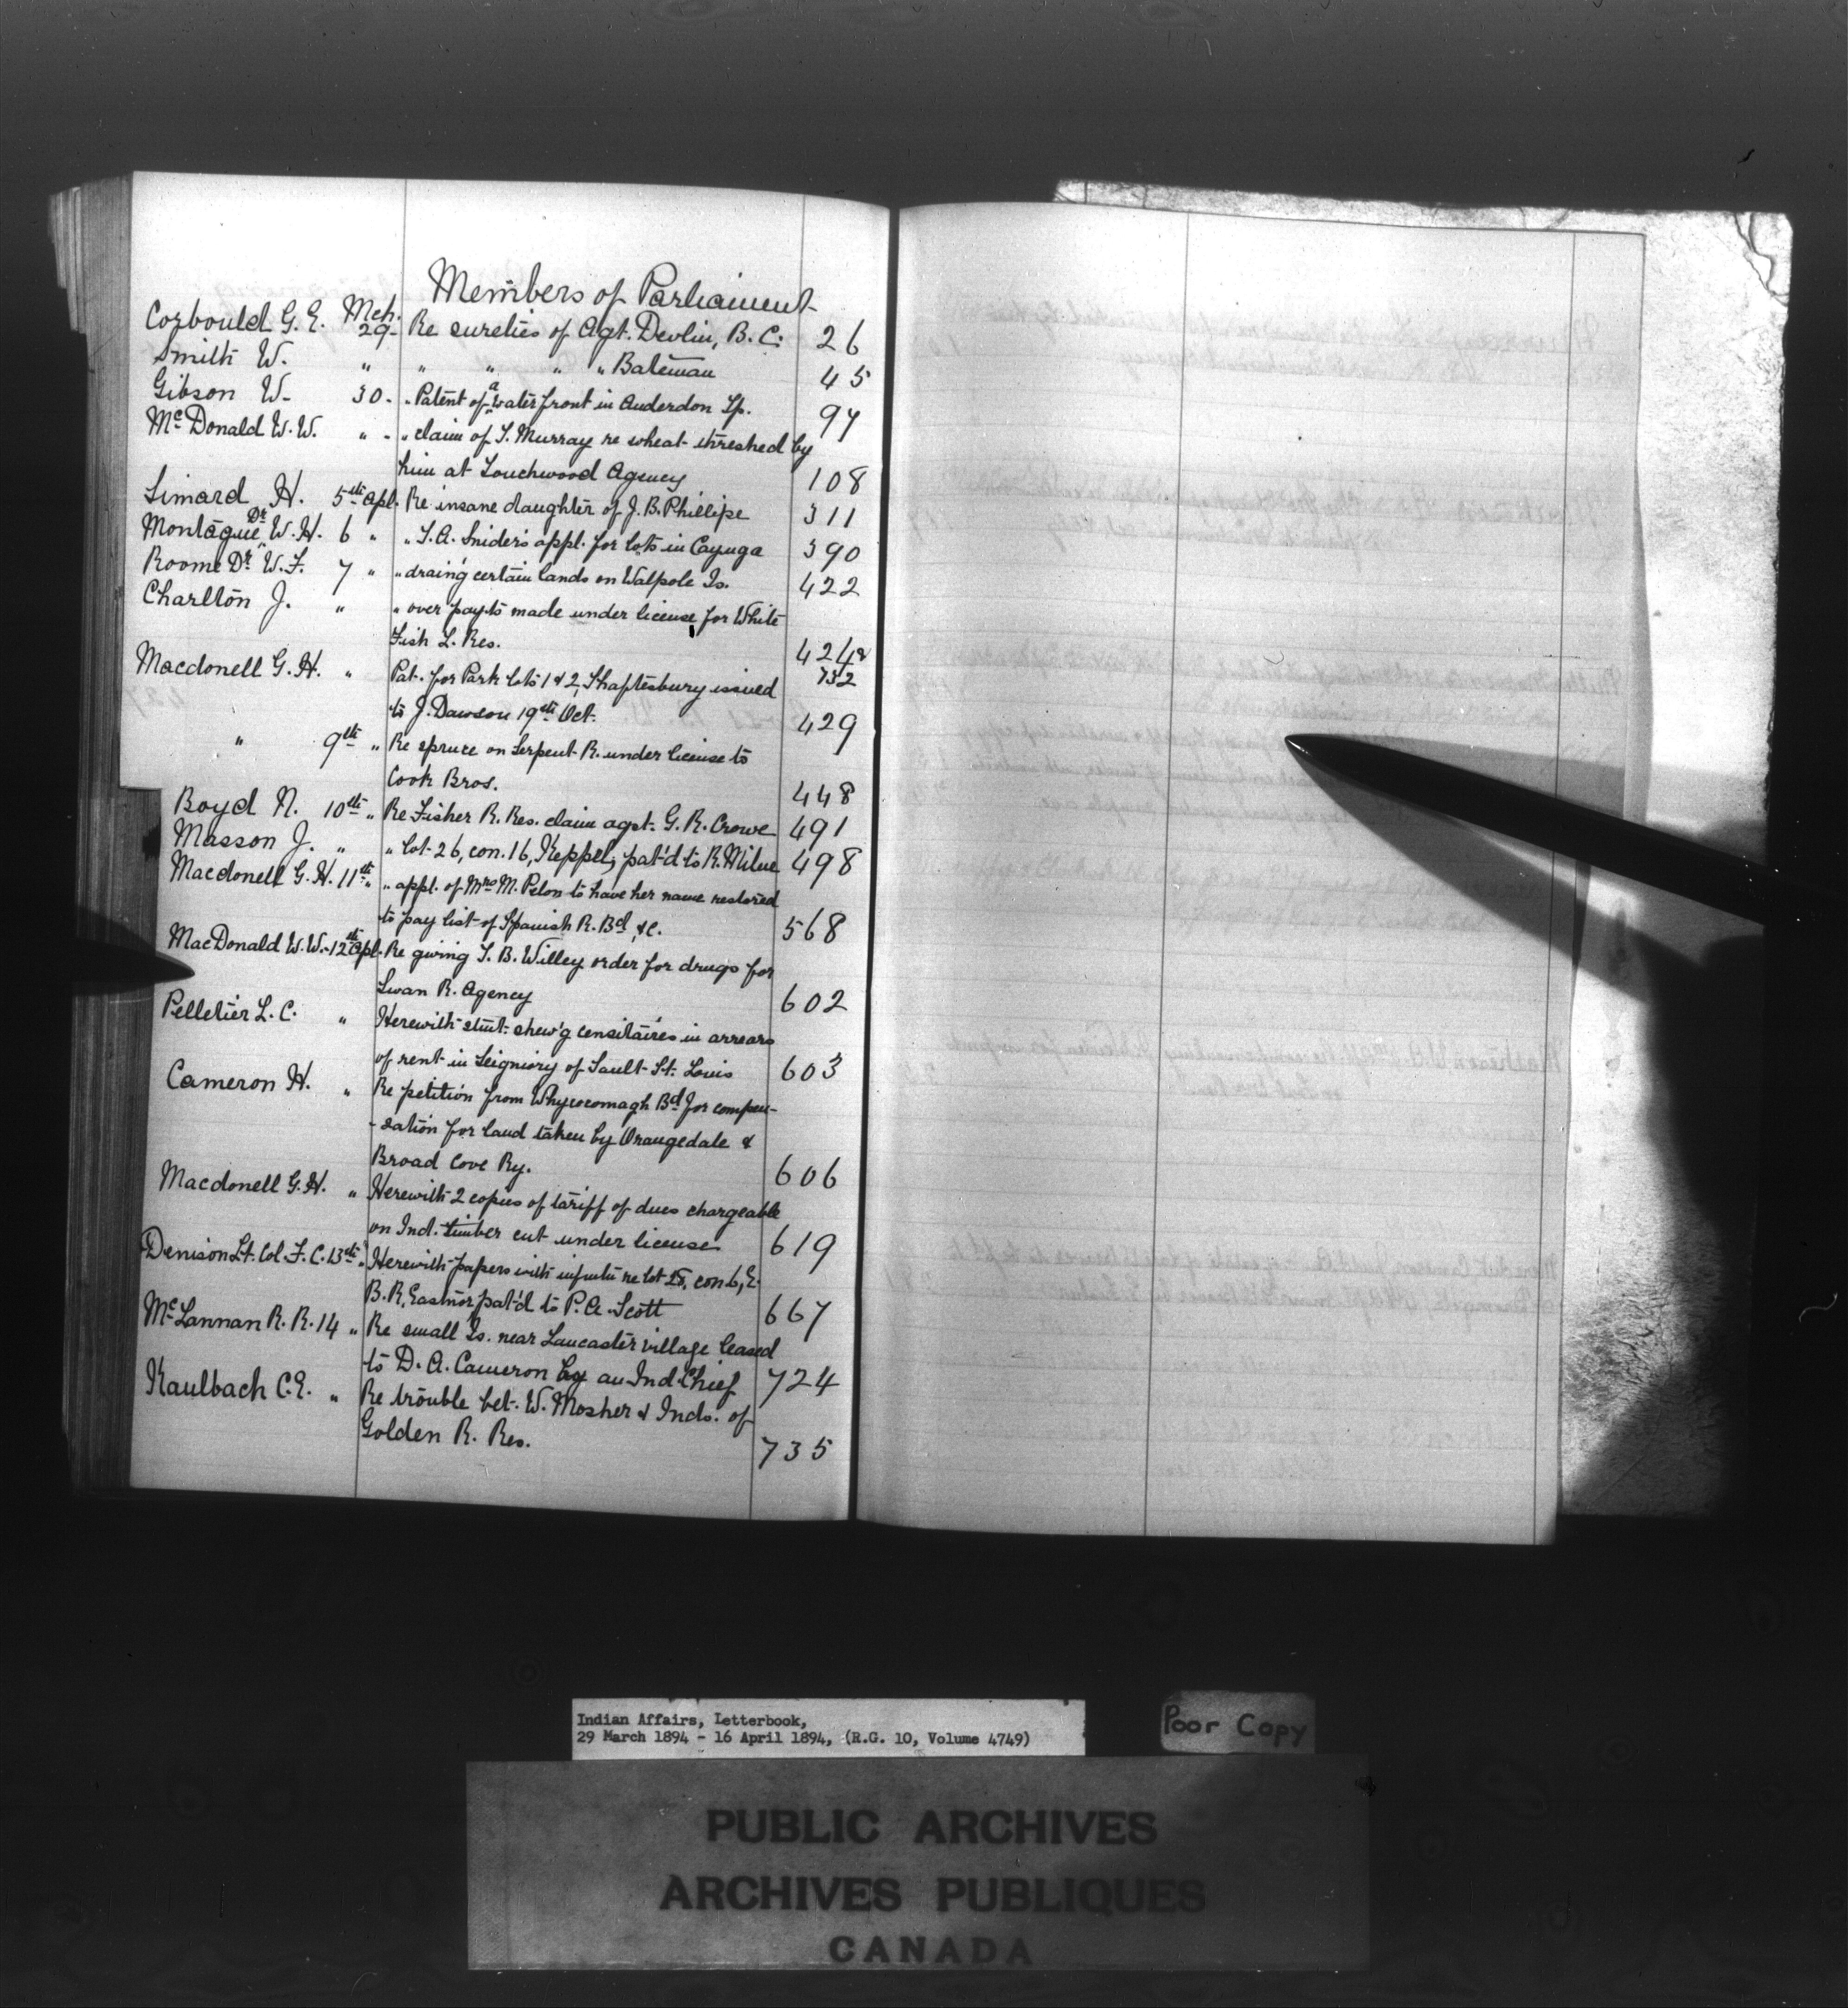 Members of Parliament
Corbould G. E. Mch. 29- Re sureties of Agt. Devlin, B. C. 26
Smith W. " " " " " Bateman 45
Gibson W- 30 - " Patent of a water front in Anderdon Tp. 97
McDonald W. W. " - " claim of T. Murray re wheat threshed by
him at Touchwood Agency 108
Simard H. 5th Apl. Re insane daughter of J. B. Phillipe 311
Montague Dr W. H. 6 " " T. A. Snider's appl. for lots in Cayuga 390
Roome Dr W. F. 7 " " drain'g certain lands on Walpole Is. 422
Charlton J. " " over pay'ts made under license for White
Fish L. Res. 424 & 732
Macdonell G. H. " Pat. for Park lots 1 & 2, Shaftesbury issued
to J. Dawson 19th Oct. 429
" 9th " Re spruce on Serpent R. under license to
Cook Bros. 448
Boyd N. 10th " Re Fisher R. Res. claim agst. G. R. Crowe 491
Masson J. " " lot 26, con. 16, Keppel, pat'd to R. Milne 498
Macdonell G. H. 11th " " appl. of Mrs M. Pelon to have her name restored
to pay list of Spanish R. Bd, &c. 568
MacDonald W. W. - 12th Apl. Re giving T. B. Willey order for drugs for
Swan R. Agency 602
Pelletier L. C. " Herewith stmt. shew'g censitaires in arrears
of rent in Seigniory of Sault St. Louis 603
Cameron H. " Re petition from Whycocomagh Bd for compen-
-sation for land taken by Orangedale &
Broad Cove Ry. 606
Macdonell G. H. " Herewith 2 copies of tariff of dues chargeable
on Ind. timber cut under license 619
Denison Lt. Col. F. C. 13th " Herewith papers with infmtn re lot 25, con 6, E.
B. R, Eastnor pat'd to P. A. Scott 667
McLannan R. R. 14 " Re small Is. near Lancaster village leased
to D. A. Cameron by an Ind. Chief 724
Kaulbach C. E. " Re trouble bet. W. Mosher & Inds. of
Golden R. Res. 735
Indian Affairs, Letterbook,
29 March 1894 - 16 April 1894, (R.G. 10, Volume 4749)
Poor Copy
PUBLIC ARCHIVES
ARCHIVES PUBLIQUES
CANADA